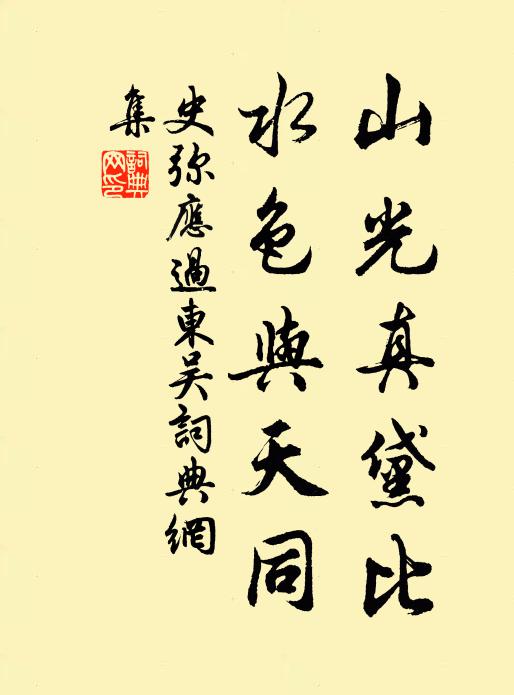 山光真黛比
水色與天同
史弥應過東吴詞典網
集
詞典
网印